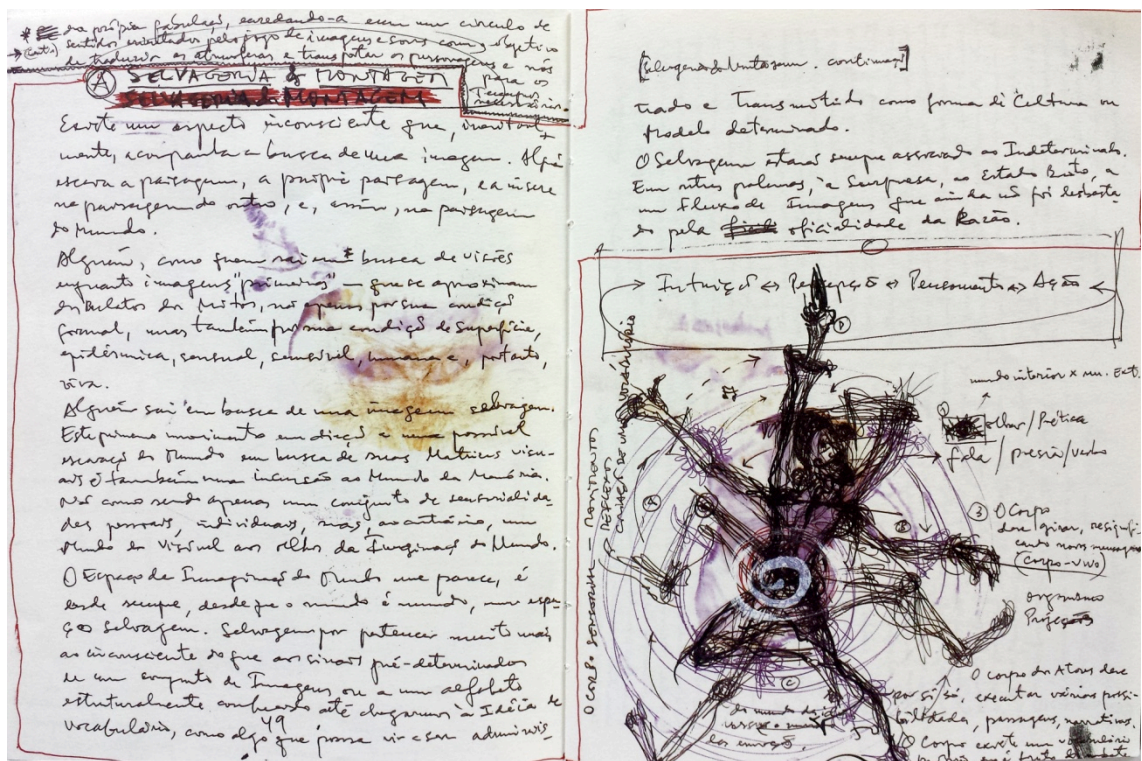 da própria fabulação, enredando-a em um círculo de
sentidos orientados pelo jogo de imagens e sons com o objetivo
de traduzir as atmosferas e transportar os personagens e nós
para os
Tempos
A SELVAGERIA & MONTAGEM
SELVAGERIA da MONTAGEM
Existe um aspecto inconsciente que, inevitavel
mente, acompanha a busca de uma imagem. Alguém
escava a paisagem, a própria paisagem, e a insere
na paisagem do outro, e, assim, na paisagem
do Mundo.
Alguém, como quem sai em busca de visões
enquanto imagens "primeiras" em que se aproximam
dos Relatos dos Mitos, não apenas por sua condição
formal, mas também por sua condição de superfície,
epidérmica, sensual, sensível, humana e, portanto,
viva.
Alguém sai em busca de uma imagem selvagem.
Este primeiro movimento em direção a uma possível
escavação do Mundo em busca de suas Matrizes visu-
ais é também uma incursão ao Mundo da Memória.
Não como sendo apenas um conjunto de sensorialida-
des pessoais, individuais, mas, ao contrário, um
Mundo do visível aos olhos da Imaginação do Mundo.
O Espaço da Imaginação do Mundo me parece, é
desde sempre, desde que o mundo é mundo, um espa-
ço selvagem. Selvagem por pertencer muito mais
ao inconsciente do que aos sinais pré-determinados
de um conjunto de Imagens ou a um alfabeto
estruturalmente conhecido até chegarmos à Idéia de
vocabulário, como algo que possa vir a ser adminis-
49
[Selvageria da Montagem. continuação]
trado e Transmitido como forma de Cultura ou
Modelo determinado.
O Selvagem estará sempre associado ao Indeterminado.
Em outras palavras, à Surpresa, ao Estado Bruto, a
um Fluxo de Imagens que ainda não foi desbasta-
do pela oficialidade da Razão.
Intuição ↔ Percepção ↔ Pensamento ↔ Ação
mundo interior x mu. Ext.
olhar/Poética
fala / pressão/verbo
3 O Corpo
deve girar, resignifi-
cando novas mensagens
(corpo-vivo)
organismo
Projeções
O CORPO SENSORIAL MOVIMENTOS
REFLEXOS
CABEÇA DE UM VOCABULÁRIO
A
B
C
D
do mundo da ação
versus o mundo
das emoções.
O corpo do Ator deve
por si só, executar várias possi-
bilidades, passagens, narrativas.
O Corpo existe um vocabulário